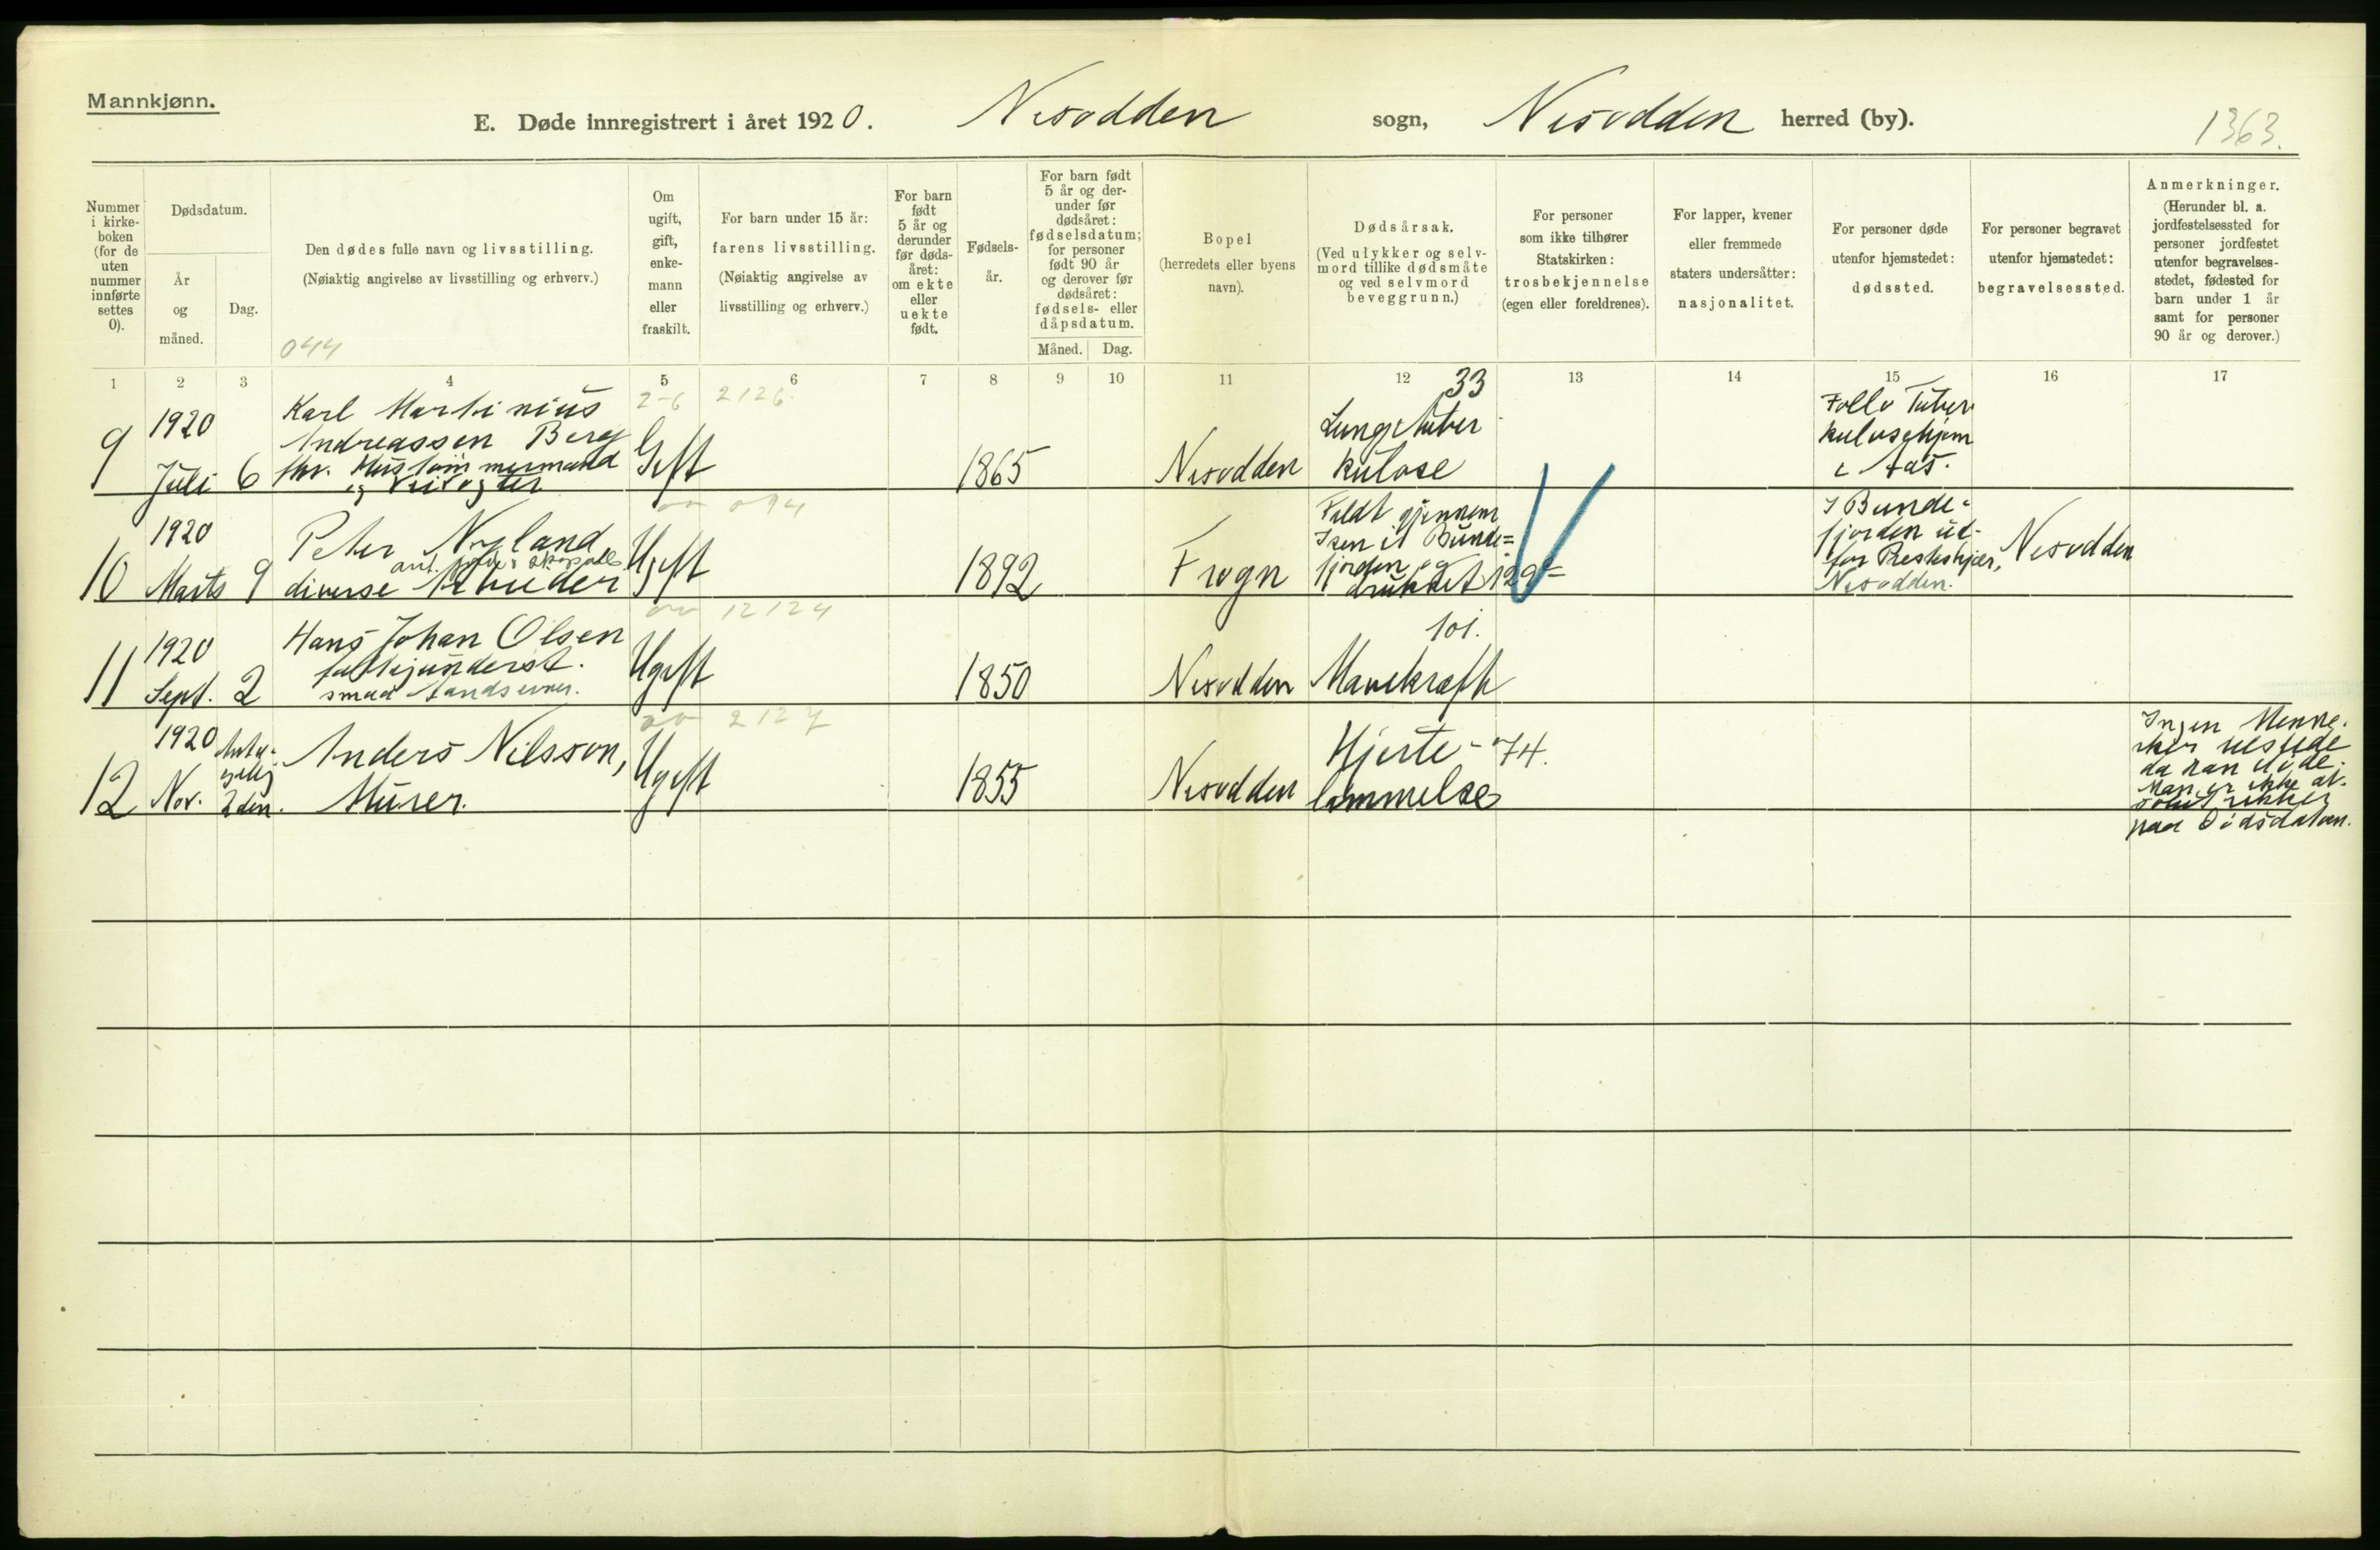 Mannkjønn.
E. Døde innregistrert i året 1920. Nesodden sogn, Nesodden herred (by).
1363.
Nummer i kirke-boken (for de uten nummer innførte settes 0).
Dødsdatum.
År og måned.
Dag.
Den dødes fulle navn og livsstilling.
(Nøiaktig angivelse av livsstilling og erhverv.)
044
Om ugift, gift, enke-mann eller fraskilt.
For barn under 15 år: farens livsstilling.
(Nøiaktig angivelse av livsstilling og erhverv.)
For barn født 5 år og derunder før døds-året: om ekte eller uekte født.
Fødsels-år.
For barn født 5 år og der-under før dødsåret: fødselsdatum; for personer født 90 år og derover før dødsåret: fødsels- eller dåpsdatum.
Måned. Dag.
Bopel
(herredets eller byens navn).
Dødsårsak.
(Ved ulykker og selv-mord tillike dødsmåte og ved selvmord beveggrunn.)
For personer som ikke tilhører Statskirken: trosbekjennelse (egen eller foreldrenes).
For lapper, kvener eller fremmede staters undersåtter: nasjonalitet.
For personer døde utenfor hjemstedet: dødssted.
For personer begravet utenfor hjemstedet: begravelsessted.
Anmerkninger.
(Herunder bl. a. jordfestelsessted for personer jordfestet utenfor begravelses-stedet, fødested for barn under 1 år samt for personer 90 år og derover.)
1 2 3 4 5 6 7 8 9 10 11 12 13 14 15 16 17
9
1920
Juli 6
Karl Martinius
Andreassen Berg
fhv. Hustømmermand
og
2-6 2126
Gift
1865
Nesodden
33
Lungetuber
kulose
Follo Tuber
kulosehjem
i Aas.
10
1920
Marts 9
Peter Nyland
diverse Arbeider
094
Ugift
1892
Frogn
Faldt gjennem
Isen i Bunde=
fjorden og
druknet 129
I Bunde-
fjorden ud-
for Presteskjær,
Nesodden.
Nesodden
11
1920
Sept. 2
Hans Johan Olsen
smaa
12124
Ugift
1850
Nesodden
101.
Mavekræft
12
1920
Nov.
Anta-
gelig
2den.
Anders Nilsson,
Murer.
2127
Ugift
1855
Nesodden
Hjerte- 74.
lammelse
Ingen Menne-
sker tilstede
da han døde.
Man er ikke ab-
solut sikker
paa Dødsdatoen.